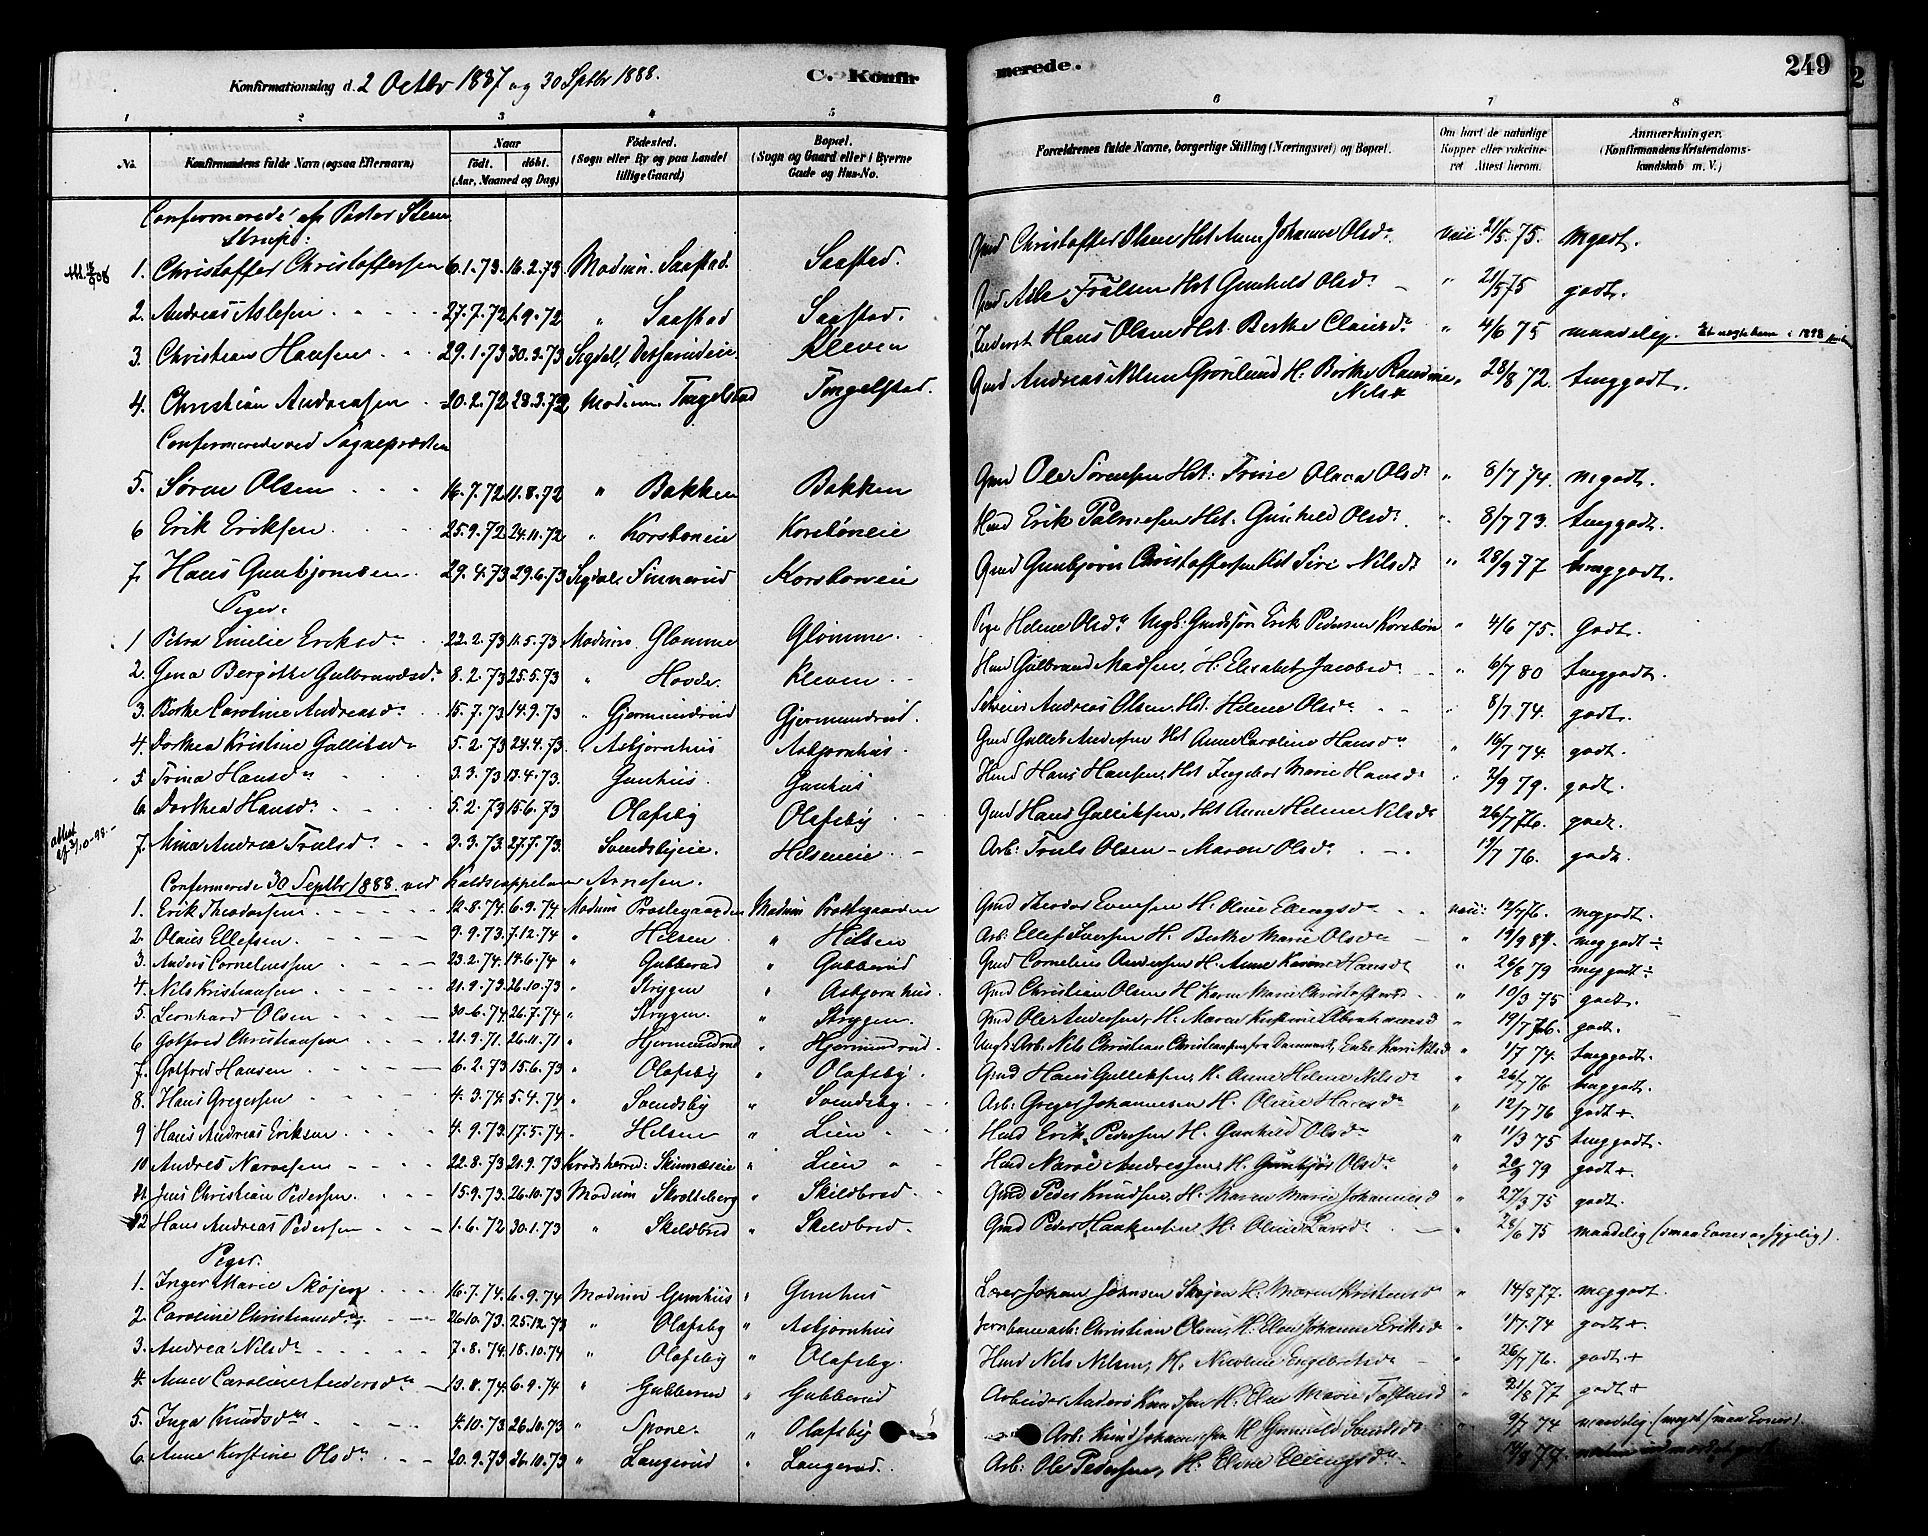 Konfirmationsdag d. 2 Octbr 1887 og 30 Septbr 1888.
C. Konfirmerede.
249
1 2 3 4 5 6 7 8
No.
Konfirmandens fulde Navn (ogsaa Efternavn)
Naar
født. døbt.
(Aar, Maaned og Dag)
Fødested.
(Sogn eller By og paa Landet tillige Gaard)
Bopæl.
(Sogn og Gaard eller i Byerne Gade og Hus-No.
Forældrenes fulde Navne, borgerlige Stilling (Næringsvei) og Bopæl.
Om havt de naturlige Kopper eller vaccineret Attest herom.
Anmærkninger.
(Konfirmandens Kristendomskundskab m. V.)
Confirmerede af Pastor Steenstrup:
1. Christoffer Christoffersen 6.1.73. 16.2.73 Modum. Saastad. Saastad. Gmd Christoffer Olsen Hst Anne Johanne Olsdr vacc: 21/5.75. mgodt.
2. Andreas Aslesen 27.7.72 1.9.72 " Saastad Saastad. Gmd Asle Trulsen Hst Gunhild Olsdr " 21/5 75 godt.
3. Christian Hansen 29.1.73 30.3.73 Sigdal, Kleven Hans Olsen Hst. Berthe Clausdr " 4/6 75 maadelig.
4. Christian Andreasen 20.2.72 28.3.72 Modum Tingelstad Tingelstad. Gmd Andreas Nilsen Grønlund H. Berthe Randine Nilsdr 28/8 72. tmggodt.
Confirmerede ved Sognepresten
5. Søren Olsen 16.7.72 11.8.72 " Bakken Bakken Gmd Ole Sørensen Hst: Trine Olava Olsdr " 8/7 74. mgodt.
6 Erik Eriksen 25.9.72 24.11.72 " Korsbøneie Korsbøneie Hmd Erik Palmesen Hst. Gunhild Olsdr. " 8/7 73. tmggodt.
7. Hans Gunbjørnsen 29.4.73 29.6.73 Sigdal Finnerud Korsbøneie Gmd Gunbjørn Christoffersen Hst Siri Nilsdr " 28/9 77 tmggodt.
Piger.
1 Petra Emilie Eriksdr 22.2.73 11.5.73 Modum. Glomme Glomme. Pige Helene Olsdr Ungk. Gaardssøn Erik Pedersen Korsbøn " 4/6 75. Godt.
2. Gina Bergitte Gulbrandsdr 8.2.73 25.5.73 " Hovde. Kleven Hmd Gulbrand Madsen, H. Elisabet Jacobsdr " 6/7 80 tmggodt.
3. Berthe Caroline Andreasdr 15.7.73 14.9.73 " Gjermundrud Gjermundrud. Andreas Olsen, Hst. Helene Olsdr " 8/7 74. godt.
4. Dorthea Kristine Galliksdr 5.2.73 24.4.73 Asbjørnhus Asbjørnhus. Gmd Gullek Andersen Hst Anne Caroline Hansdr " 16/7 74. godt.
5 Trina Hansdr 3.3.73 13.4.73. Gunhus. Gunhus Hmd Hans Hansen, Hst Ingebor Marie Hansdr " 2/9 79. godt.
6. Dorthea Hansdr 5.2.73 15.6.73 Olafsby Olafsby Gmd Hans Gulliksen, Hst Anne Helene Nilsdr 26/7 76. godt.
7. Mina Andrea Trulsdr 3.3.73. 27.7.73. Svendsbyeie. Hilseneie Arb: Truls Olsen - Maren Olsdr 19/7 76. godt.
Confirmerede 30 Septbr 1888 ved Kaldscappelan Arnesen.
1. Erik Theodorsen 12.8.74 6.9.74 Modum Prestegaarden Modum Prestegaarden Gmd Theodor Evensen H. Oline Ellingsdr vacc: 19/7 76. meggodt.
2. Olaus Ellefsen. 9.9.73 7.12.74 " Hilsen " Hilsen Arb. Ellef Iversen H. Berthe Marie Olsdr " 19/9 84. meggodt ÷
3. Anders Corneliussen 23.2.74. 14.6.74 " Gubberud " Gubberud Gmd Cornelius Andersen H. Anne Karine Hansdr " 26/8 79 meggodt ÷
4. Nils Kristiansen 21.9.73 26.10.73 " Strygen " Asbjørnhus. Gmd Christian Olsen H. Karen Marie Christoffersdr " 10/3 75 godt.
5. Leonhard Olsen 30.6.74 26.7.74 " Strygen. " Strygen. Gmd Ole Andersen, H. Maren Kristine Abrahamsd " 19/7 76. godt.
6 Gotfred Christiansen 21.9.71. 26.11.71 " Hjermundrud " Hjermundrud. Ungk. Arb. Nils Christian Christiansen fra Danmark, Enke Kari Nilsd " 1/7 74. tmggodt.
7. Gotfred Hansen 6.2.73 15.6.73 " Olafsby " Olafsby. Gmd Hans Gulliksen, H. Anne Helene Nilsdr " 26/7 76 tmggodt.
8. Hans Gregersen 4.3.74. 5.4.74 " Svendsby " Svendsby. Arb: Greger Johannesen H. Oline Hansdr " 12/7 76 godt +
9 Hans Andreas Eriksen 4.9.73 17.5.74 " Hilsen " Lien Hmd Erik Pedersen H. Gunhild Olsdr " 11/3 75 tmggodt.
10 Andres Narvesen 22.8.73 21.9.73 Krødsherred: Skinnæseie " Lien Hmd Narve Andresen, H. Gunbjør Olsdr " 20/9 79 godt +
11 Jens Christian Pedersen. 15.9.73 26.10.73 Modum Skotteberg " Skildbred Gmd Peder Knudsen, H. Maren Marie Johannesd " 27/3 75 godt.
12 Hans Andreas Pedersen 1.6.72 30.1.73 " Skildbred " Skildbred. Gmd Peder Haakensen H. Oline Larsdr " 28/6 75 maadelig (smaa Evner og sygelig).
Piger.
1. Inger Marie Skøjen 16.7.74. 6.9.74 Modum Gunhus " Gunhus Lærer Johan Johnsen Skøjen H. Maren Kristensdr " 14/8 77. meggodt.
2. Caroline Christiansdr 26.10.73. 25.12.73 " Olafsby " Asbjørnhus Jernbanearb: Christian Olsen, H. Elen Johanne Eriksd " 1/7 74 godt +.
3. Andrea Nilsdr 7.8.74 18.10.74 " Olafsby " Olafsby. Hmd Nils Nilsen, H. Nicoline Engebretsdr " 26/7 76. godt +
4. Anne Caroline Andersdr 13.8.74 6.9.74 " Gubberud " Gubberud Arbeider Anders Knudsen H. Elen Marie Tostensd " 21/8 77 godt +
5. Inga Knudsdr 4.10.73 26.10.73 " Spone. " Olafsby Arb: Knud Johannesen H. Gunhild " 9/7 74 maadelig (meget smaa Evner).
6. Anne Kirstine Olsdr 20.9.73 26.10.73 " Langerud " Langerud. Arb: Ole Pedersen, H. Eline Ellingsdr " 14/8 77.